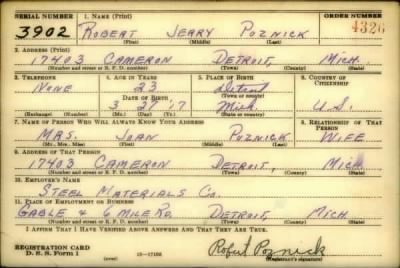 SERIAL NUMBER 1. NAME (Print) ORDER NUMBER
3902 ROBERT JERRY POZNICK 4326
(First) (Middle) (Last)
2. ADDRESS (Print)
17403 CAMERON DETROIT, MICH.
(Number and street or R. F. D. number) (Town) (County) (State)
3. TELEPHONE 4. AGE IN YEARS 5. PLACE OF BIRTH 6. COUNTRY OF CITIZENSHIP
NONE 23 Detroit
DATE OF BIRTH (Town or county)
3 17 Mich. U.S.
(Exchange) (Number) (Mo.) (Day) (Yr.) (State or country)
7. NAME OF PERSON WHO WILL ALWAYS KNOW YOUR ADDRESS 8. RELATIONSHIP OF THAT PERSON
MRS. JOAN POZNICK WIFE
(Mr., Mrs., Miss) (First) (Middle) (Last)
9. ADDRESS OF THAT PERSON
17403 CAMERON DETROIT, MICH.
(Number and street or R. F. D. number) (Town) (County) (State)
10. EMPLOYER'S NAME
STEEL MATERIALS CO.
11. PLACE OF EMPLOYMENT OR BUSINESS
GABLE & 6 MILE RD. DETROIT, MICH
(Number and street or R. F. D. number) (Town) (County) (State)
I AFFIRM THAT I HAVE VERIFIED ABOVE ANSWERS AND THAT THEY ARE TRUE.
REGISTRATION CARD
D. S. S. Form 1 (over) Robert Poznick
(Registrant's signature)